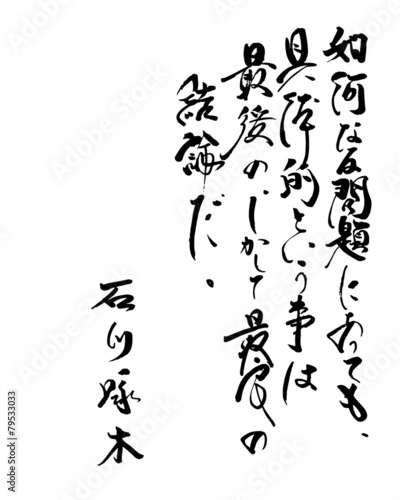 如何なる問題にあっても、
具体的という事は
最後の、しかして最高の
結論だ。
石川啄木
Adobe Stock | #79533033